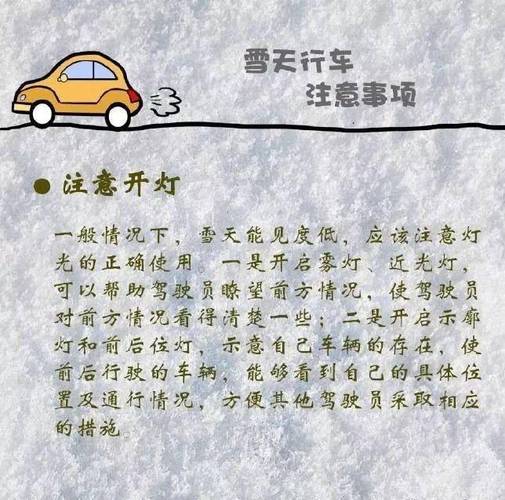 雪天行车
注意事项
● 注意开灯
一般情况下，雪天能见度低，应该注意灯
光的正确使用。一是开启雾灯、近光灯，
可以帮助驾驶员瞭望前方情况，使驾驶员
对前方情况看得清楚一些；二是开启示廓
灯和前后位灯，示意自己车辆的存在，使
前后行驶的车辆，能够看到自己的具体位
置及通行情况，方便其他驾驶员采取相应
的措施。